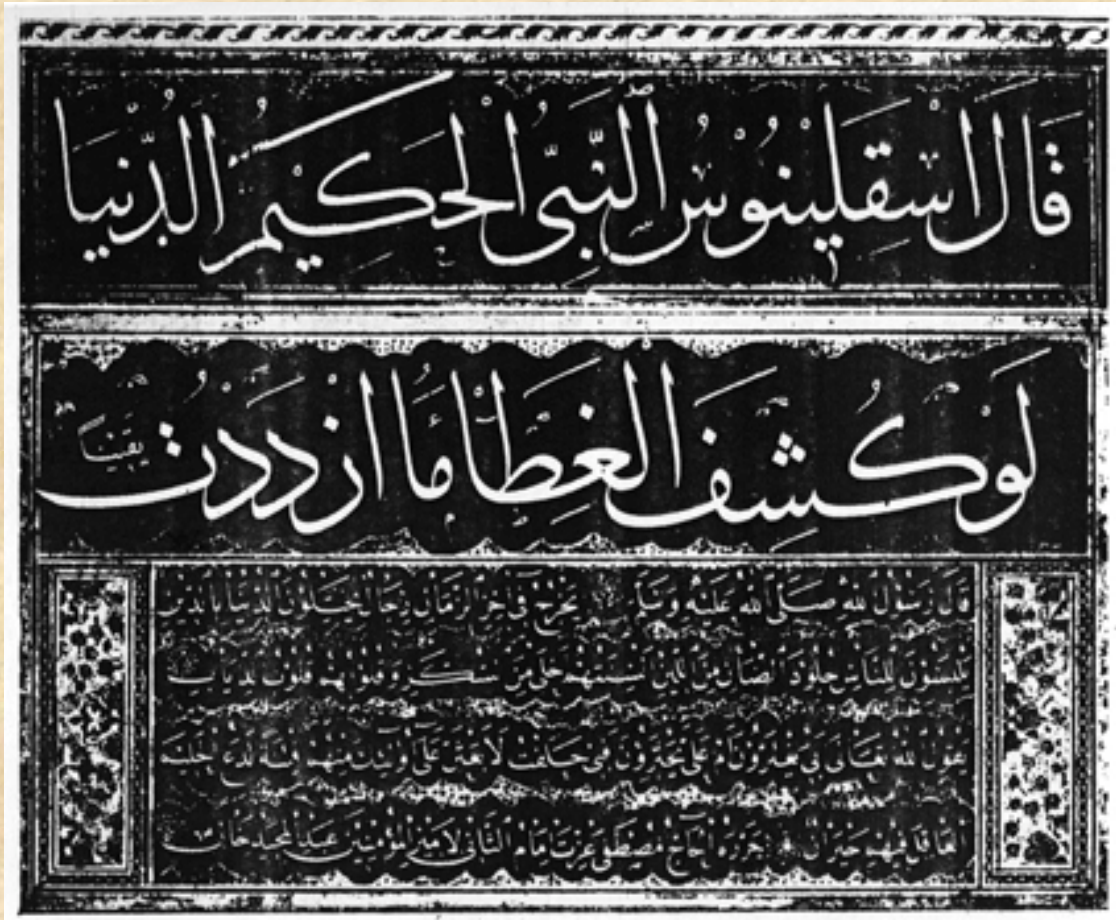 قَالَ اسْقِلِينُوسُ النَّبِىُّ الْحَكِيمُ الدُّنْيَا
لَوْ كُشِفَ الْغِطَاءُ مَا ازْدَدْتُ يَقِينًا
قال رسول الله صلى الله عليه وسلم يخرج فى اخر الزمان رجال يختلون الدنيا بالدين
يلبسون للناس جلود الضان من اللين السنتهم احلى من سكر وقلوبهم قلوب الذياب
يقول الله تعالى ابى يغترون ام على يجترؤن فبى حلفت لابعثن على اولئك منهم فتنة تدع الحليم
العاقل فيهم حيران حرره الحاج مصطفى عزت امام الثانى لامير المؤمنين عبد المجيد خان